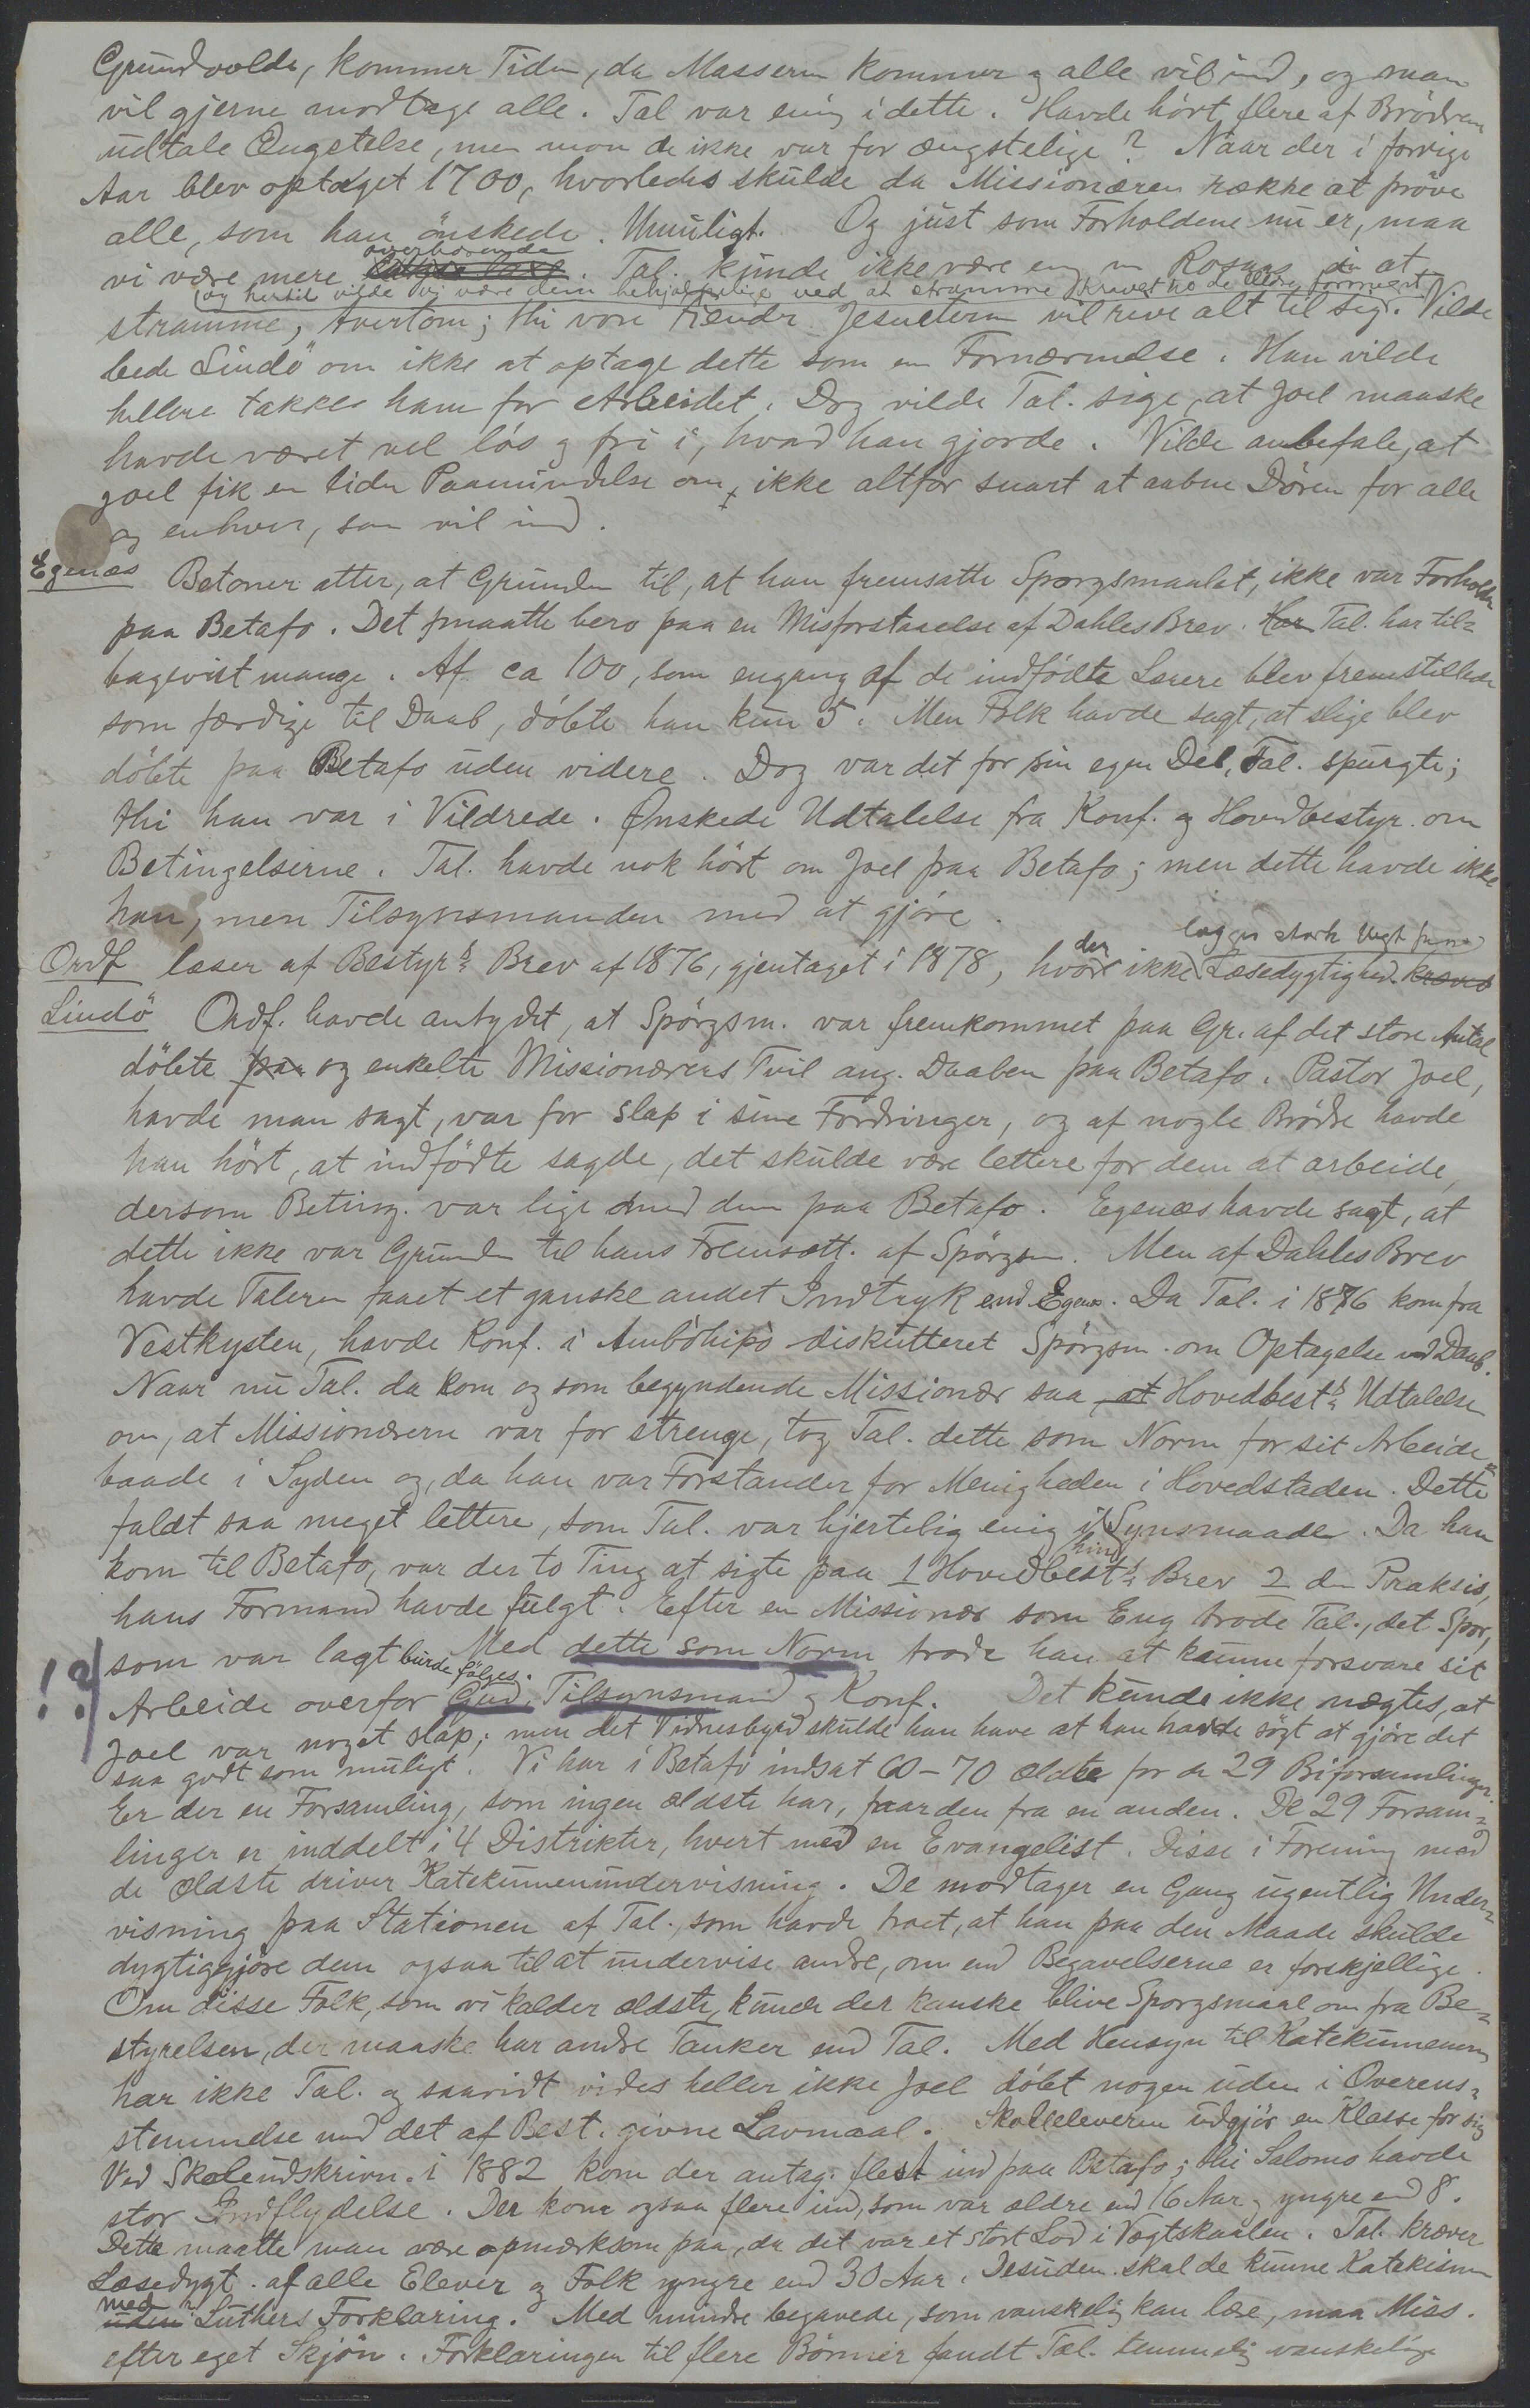 Grundvolde, kommer Tiden, da Masserne kommer og alle vil ind, og man
vil gjerne modtage alle. Tal var enig i dette. Havde hört flere af Brödrene
udtale Ængstelse, men mon de ikke var for ængstelige? Naar der i forrige
Aar blev optaget 1700, hvorledes skulde da Missionæren række at pröve
alle, som han önskede. Umuligt. Og just som Forholdene nu er, maa
overbærende
vi være mere . Tal. kunde ikke være enig m Rosaas i at
(og hertil vilde vi være dem behjælpelige ved at stramme
stramme, tvertom; thi vore Fiender Jesuiterne vil rive alt til sig. Vilde
bede Lindö om ikke at optage dette som en Fornærmelse. Han vilde
hellere takke ham for Arbeidet. Dog vilde Tal. sige, at Joel maaske
havde været vel lös og fri i, hvad han gjorde. Vilde anbefale, at
Joel fik en liden Paamindelse om, ikke altfor snart at aabne Dören for alle
og enhver, som vil ind.
Egenæs Betoner atter, at Grunden til, at han fremsatte Spørgsmaalet, ikke var Forholden
paa Betafo. Det maatte bero paa en Misforstaaelse af Dahles Brev. Har Tal. har til-
bagevist mange. Af ca 100, som engang af de indfödte Lærere blev fremstillede
som færdige til Daab, döbte han kun 5. Men Folk havde sagt, at slige blev
döbte paa Betafo uden videre. Dog var det for sin egen Del, Tal. spurgte;
thi han var i Vildrede. Ønskede Udtalelse fra Konf. og Hovedbestyr. om
Betingelserne. Tal. havde nok hört om Joel paa Betafo; men dette havde ikke
han, men Tilsynsmanden med at gjöre.
der lægges stærk Vegt paa
Ordf læser af Bestyrs Brev af 1876, gjentaget i 1878, hvor ikke Læsedygtighed kræves
Lindö Ordf. havde antydet, at Spörgsm. var fremkommet paa Gr. af det store Antal
döbte paa og enkelte Missionærers Tvil ang. Daaben paa Betafo. Pastor Joel,
havde man sagt, var for slap i sine Fordringer, og af nogle Brödre havde
han hört, at indfödte sagde, det skulde være lettere for dem at arbeide,
dersom Beting. var lige med dem paa Betafo. Egenæs havde sagt, at
dette ikke var Grunden til hans Fremsætt. af Spörgsm. Men af Dahles Brev
havde Taleren faaet et ganske andet Indtryk end Egenæs. Da Tal. i 1876 kom fra
Vestkysten, havde Konf. i Ambòhipò diskutteret Spörgsm. om Optagelse ved Daab.
Naar nu Tal. da kom og som begyndende Missionær saa at Hovedbests Udtalelse
om, at Missionærerne var for strenge, tog Tal. dette som Norm for sit Arbeide
baade i Syden og, da han var Forstander for Menigheden i Hovedstaden. Dette
faldt saa meget lettere, som Tal. var hjertelig enig i hin Synsmaade. Da han
kom til Betafo, var der to Ting at sigte paa 1 Hovedbests Brev 2 den Praksis,
hans Formand havde fulgt. Efter en Missionær som Eng trode Tal., det Spor,
som var lagt burde fölges. Med dette som Norm trode han at kunne forsvare sit
!?
Arbeide overfor Gud, Tilsynsmand og Konf. Det kunde ikke nægtes, at
Joel var noget slap; men det Vidnesbyrd skulde han have at han havde sögt at gjöre det
saa godt som muligt. Vi har i Betafo indsat 60-70 ældste for de 29 Biforsamlinger.
Er der en Forsamling, som ingen ældste har, faar den fra en anden. De 29 Forsam-
linger er inddelt i 4 Distrikter, hvert med en Evangelist. Disse i Forening med
de ældste driver Katekumenundervisning. De modtager en Gang ugentlig Under-
visning paa Stationen af Tal., som havde troet, at han paa den Maade skulde
dygtiggjöre dem ogsaa til at undervise andre, om end Begavelserne er forskjellige.
Om disse Folk, som vi kalder ældste, kunde der kanske blive Spørgsmaal om fra Be-
styrelsen, der maaske har andre Tanker end Tal. Med Hensyn til Katekumenerne
har ikke Tal. og saavidt vides heller ikke Joel döbt nogen uden i Overens-
stemmelse med det af Best. givne Lavmaal. Skoleeleverne udgjör en Klasse for sig
Ved Skoleindskrivn. i 1882 kom der antag. flest ind paa Betafo; thi Salomo havde
stor Indflydelse. Der kom ogsaa flere ind, som var ældre end 16 Aar og yngre end 8.
Dette maatte man være opmærksom paa, da det var et stort Lod i Vægtskaalen. Tal. kræver
Læsedygt. af alle Elever og Folk yngre end 30 Aar. Desuden skal de kunne Katekismen
med
uden Luthers Forklaring. Med mindre begavede, som vanskelig kan lære, maa Miss.
efter eget Skjön. Forklaringen til flere Bönner fandt Tal. temmelig vanskelige